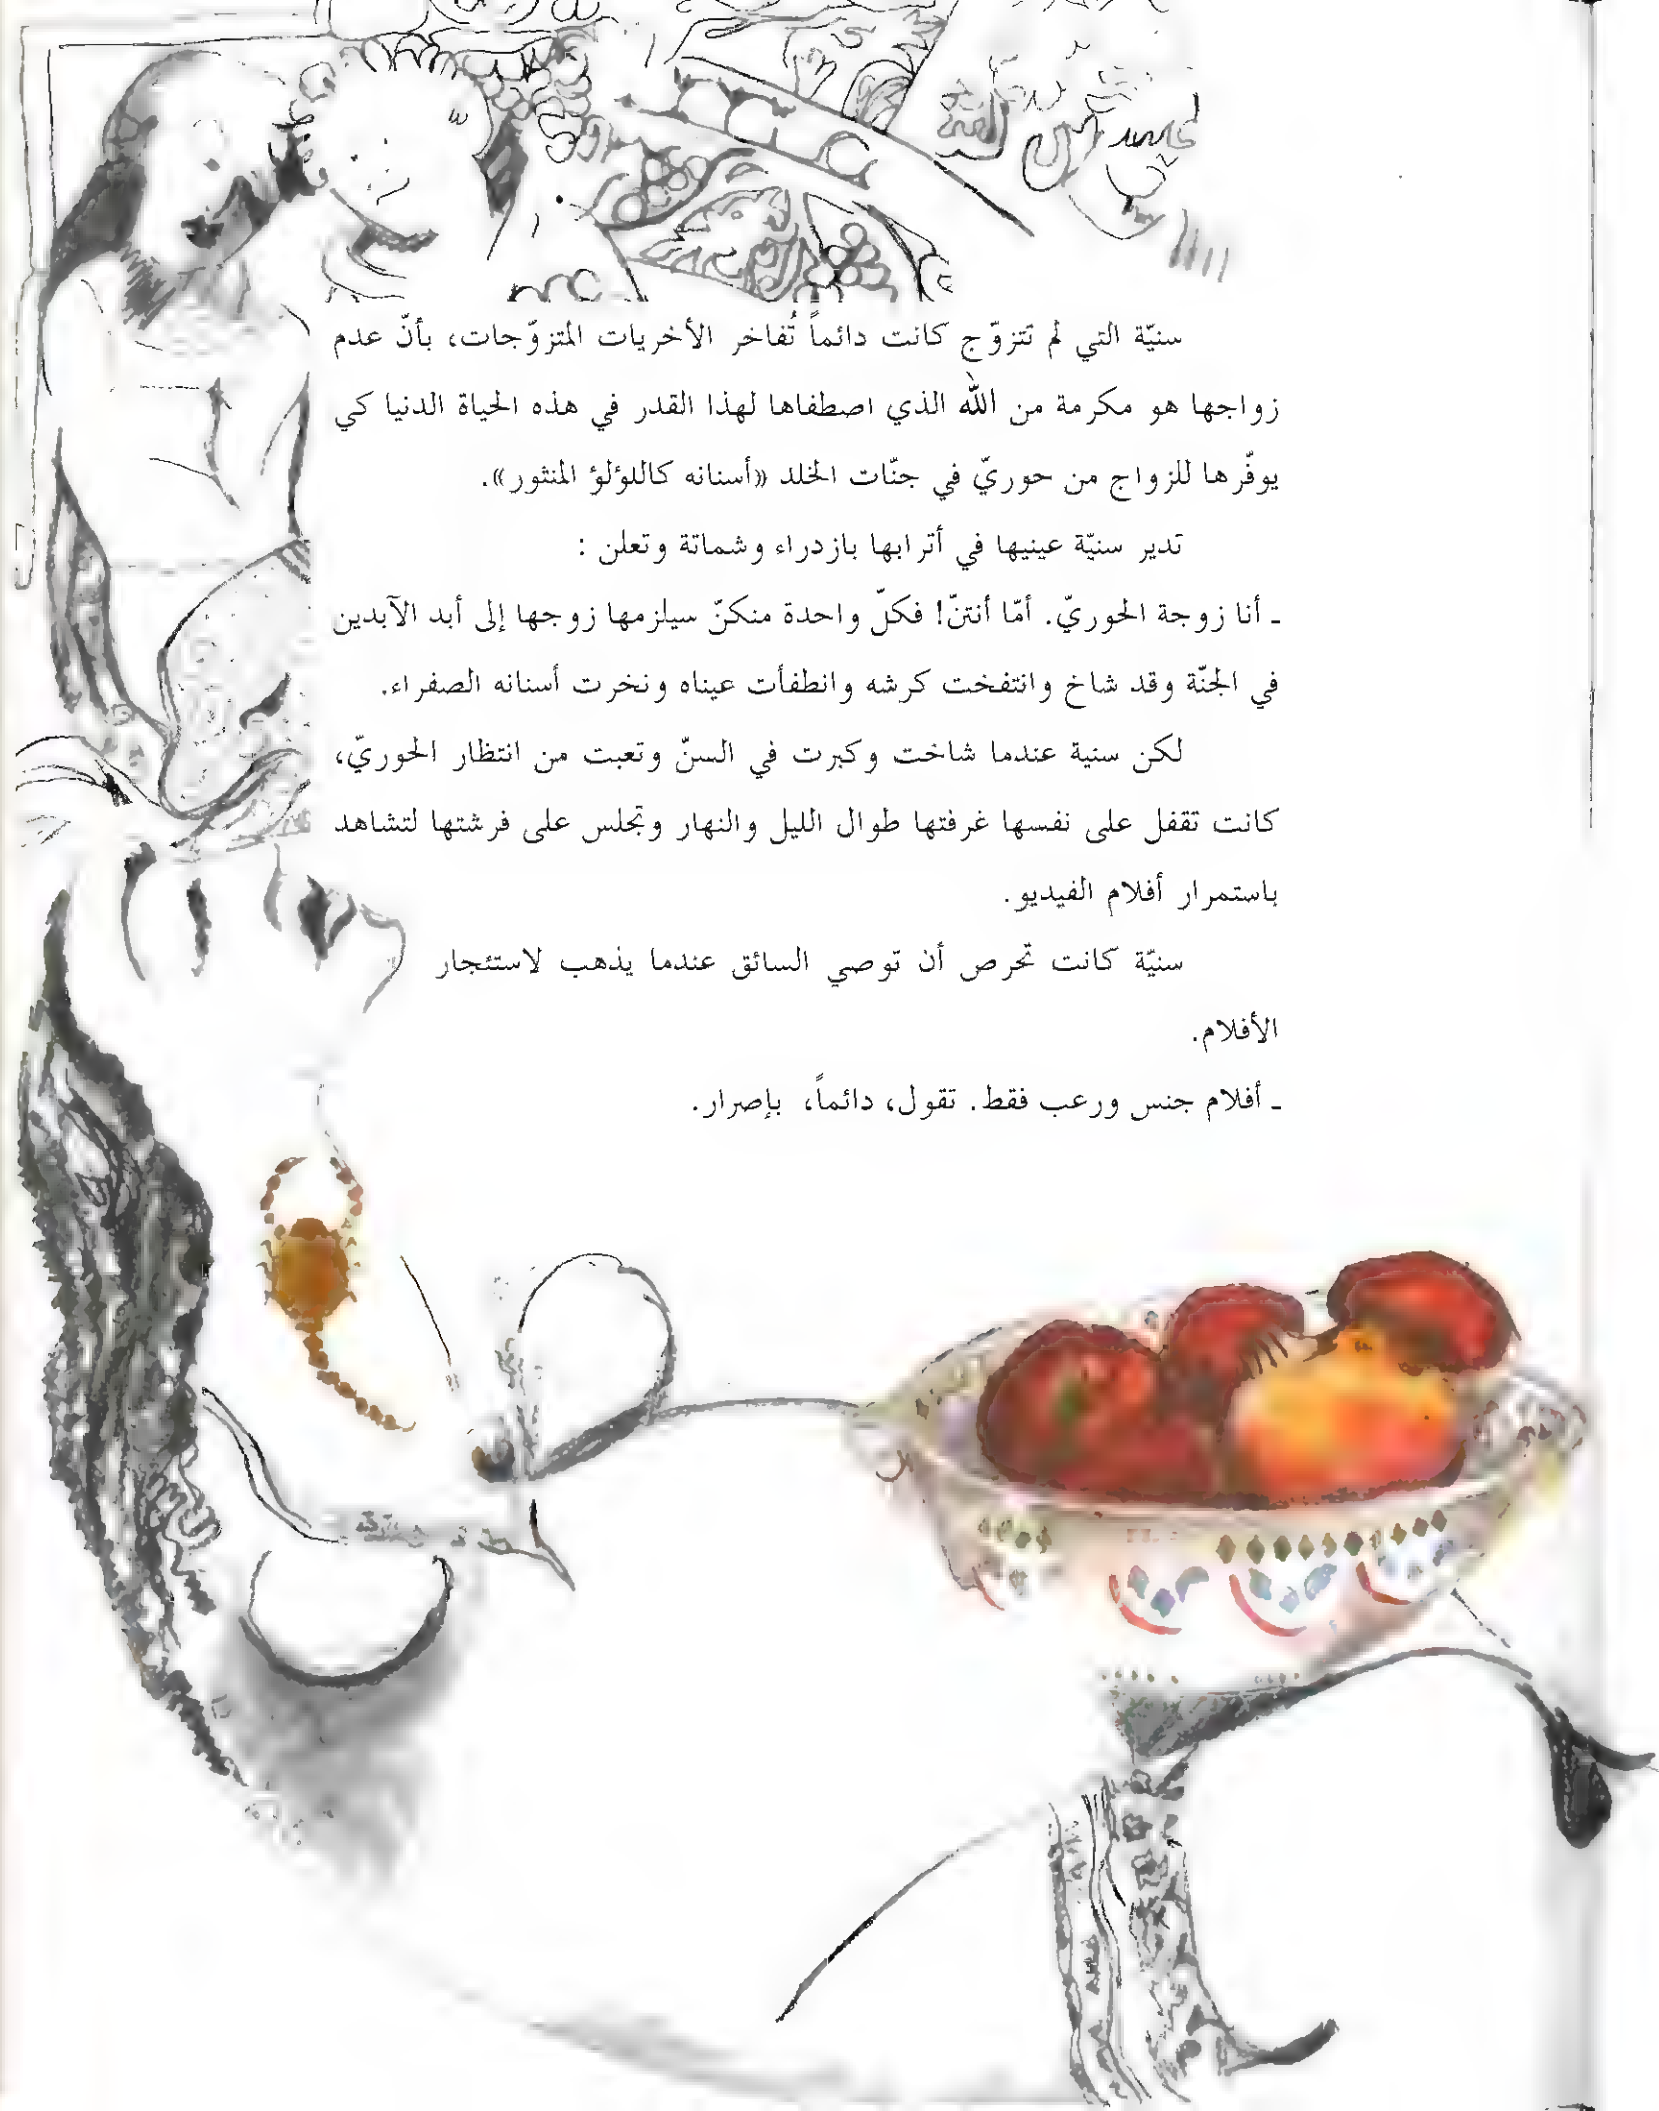 سنيّة التي لم تتزوّج كانت دائماً تُفاخر الأخريات المتزوّجات، بأنّ عدم
زواجها هو مكرمة من الله الذي اصطفاها لهذا القدر في هذه الحياة الدنيا كي
يوفّرها للزواج من حوريّ في جنّات الخلد «أسنانه كاللؤلؤ المنثور».
تدير سنيّة عينيها في أترابها بازدراء وشماتة وتعلن :
ـ أنا زوجة الحوريّ. أمّا أنتنّ! فكلّ واحدة منكنّ سيلزمها زوجها إلى أبد الآبدين
في الجنّة وقد شاخ وانتفخت كرشه وانطفأت عيناه ونخرت أسنانه الصفراء.
لكن سنية عندما شاخت وكبرت في السنّ وتعبت من انتظار الحوريّ،
كانت تقفل على نفسها غرفتها طوال الليل والنهار وتجلس على فرشتها لتشاهد
باستمرار أفلام الفيديو.
سنيّة كانت تحرص أن توصي السائق عندما يذهب لاستئجار
الأفلام.
ـ أفلام جنس ورعب فقط. تقول، دائماً، بإصرار.